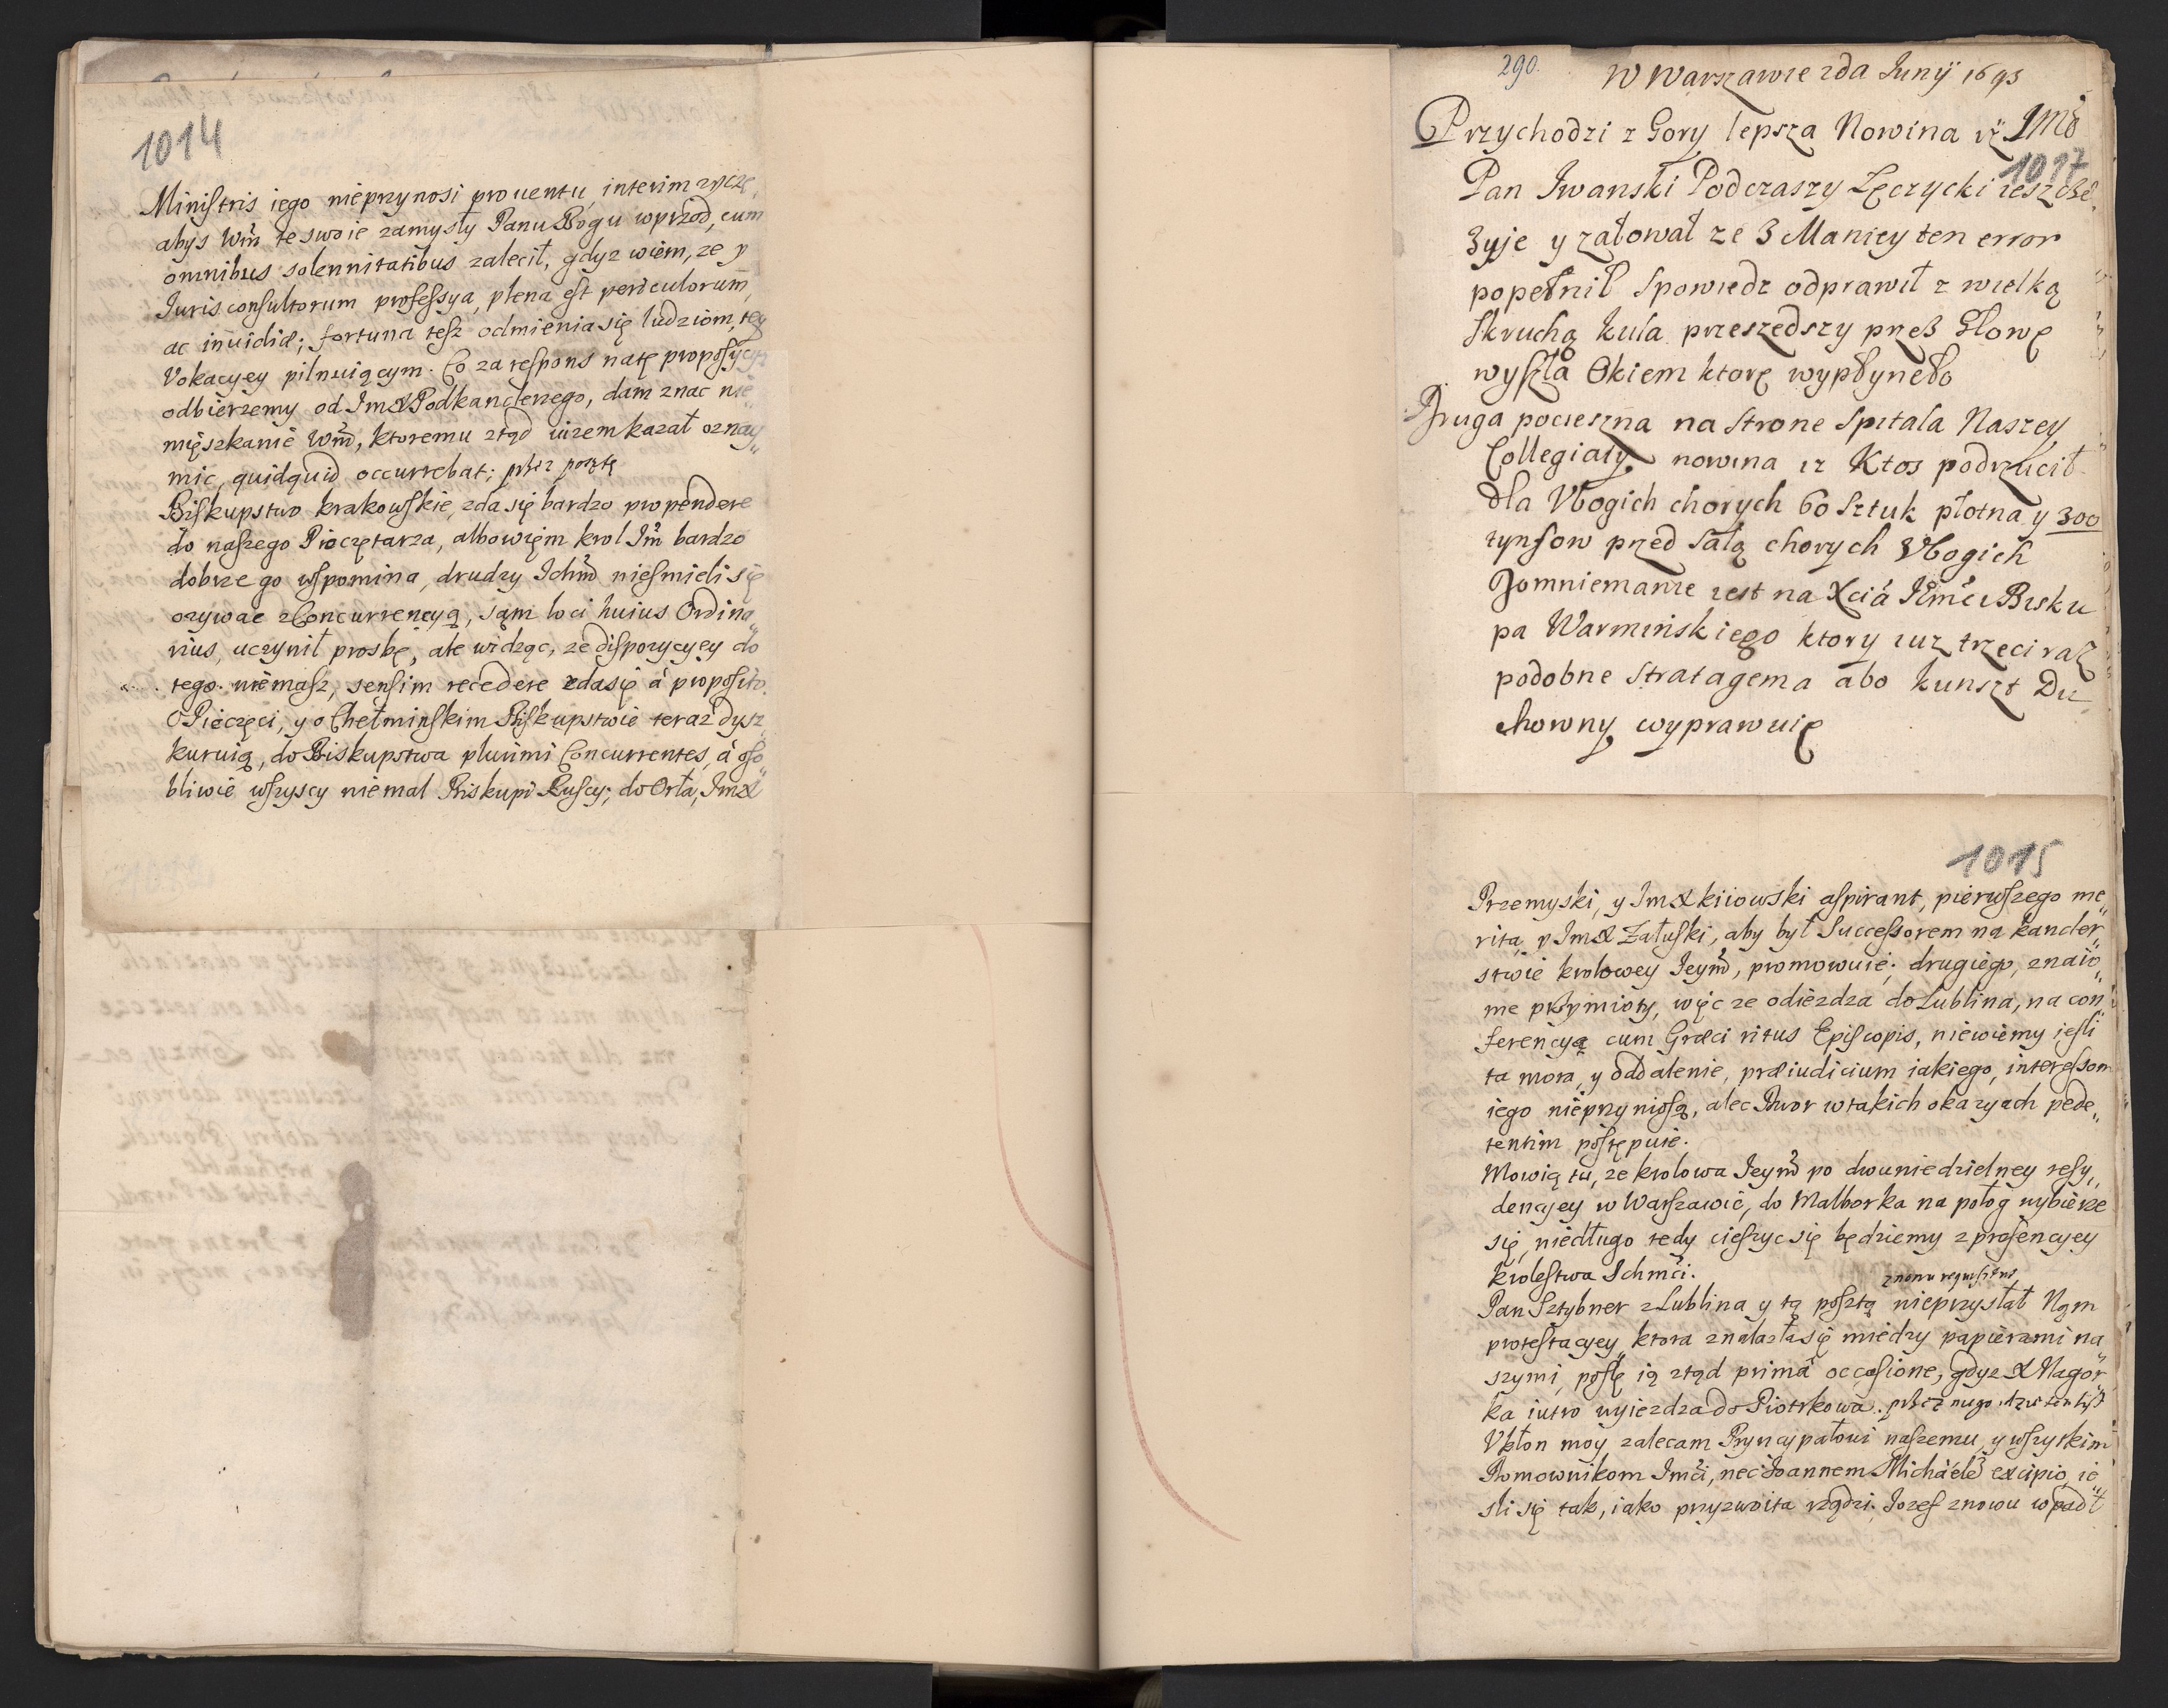 1014
Ministris iego nieprzynosi prouentu, interim zycze,
abys Wm̃ te swoie zamysły Panu Bogu wprzod, cum
omnibus solennitatibus zalecił, gdyz wiem, ze y
Jurisconsultorum professya, plena est periculorum,
ac inuidiæ; fortuna tesz odmienia się ludziom, tey
Vokacyey pilnuiącym. Co za respons natę propozycyą
odbierzemy od ImX Podkanclerzego, dam znac nie
mięszkanie Wm̃, ktoremu ztąd iuzem kazał oznay„
mic, quidquid occurrebat; przez posztę
Biskupstwo krakowskie, zda się bardzo propendere
do naszego Pieczętarza, albowięm krol Im̃ bardzo
dobrze go wspomina, drudzy Ichm̃ nieśmieli się
ozywac z Concurrencyą, sąm loci huius Ordina„
rius, uczynił prosbę, ale widząc, ze disporycyey do
tego niemasz, sensim recedere zdasię à proposito.
O Pieczęci, y o Chełminskim Biskupstwie teraz dysz„
kuruią, do Biskupstwa plurimi Concurrentes, à oso„
bliwie wszyscy niemal Biskupi Ruscy; do Orła, ImX
290. W Warszawie 2da Junÿ 1693
Przychodzi z Gory lepsza Nowina iż JMć
1017
Pan Iwanski Podczaszy Łęczycki ieszcze
żyje y załował ze z Maniey ten error
popełnił Spowiedz odprawił z wielką
Skruchą kula przeszedszy przez Głowę
wyszła Okiem ktorę wypłyneło
Druga pocieszna na strone Spitala Naszey
Collegiaty nowina iz Ktos podrzucił
dla Vbogich chorych 60 Sztuk płotna y 300
tynfow przed Salą chorych Vbogich
Pomniemanie iest na Xcià Jĕmći Bisku
pa Warmińskiego ktory iuz trzeci raz
podobne Stratagema abo kunszt Du
chowny wyprawuię
1015
Przemyski, y ImX kiiowski aspirant, pierwszego me„
rita, y ImX Załuski, aby był Successorem na kancler„
stwie krolowey Jeym̃, promowuie; drugiego, znaio„
me przymioty, więc ze odiezdza do Lublina, na con„
ferencyą cum Græci ritus Episcopis, niewiemy iesli
ta mora, y oddalenie, præiudicium iakiego, interessom
iego nieprzyniosą, alec Dwor w takich okazyach pede„
tentim postępuie.
Mowią tu, ze krolowa Jeym̃ po dwuniedzielney resy„
dencyey w Warszawie, do Malborka na połog wybierze
się, niedługo tedy cieszyc się będziemy z prosencyey
krolestwa Ichmći.
znowu requisitus
Pan Sztybner z Lublina y tą posztą nieprzysłał Nąm
protestacyey, ktora znalazła się miedzy papierami na„
szymi, poslę ią ztąd primâ occasione, gdyz X Nagor„
ka iutro wyiezdza do Piotrkowa. przez niego
Vkłon moy zalecam Pryncypałowi naszemu, y wszytkim
Domownikom Imći, nec Joannem Michaelẽ excipio, ie„
sli się tak, iako przyzwoita rządzi. Jozef znowu wpadł